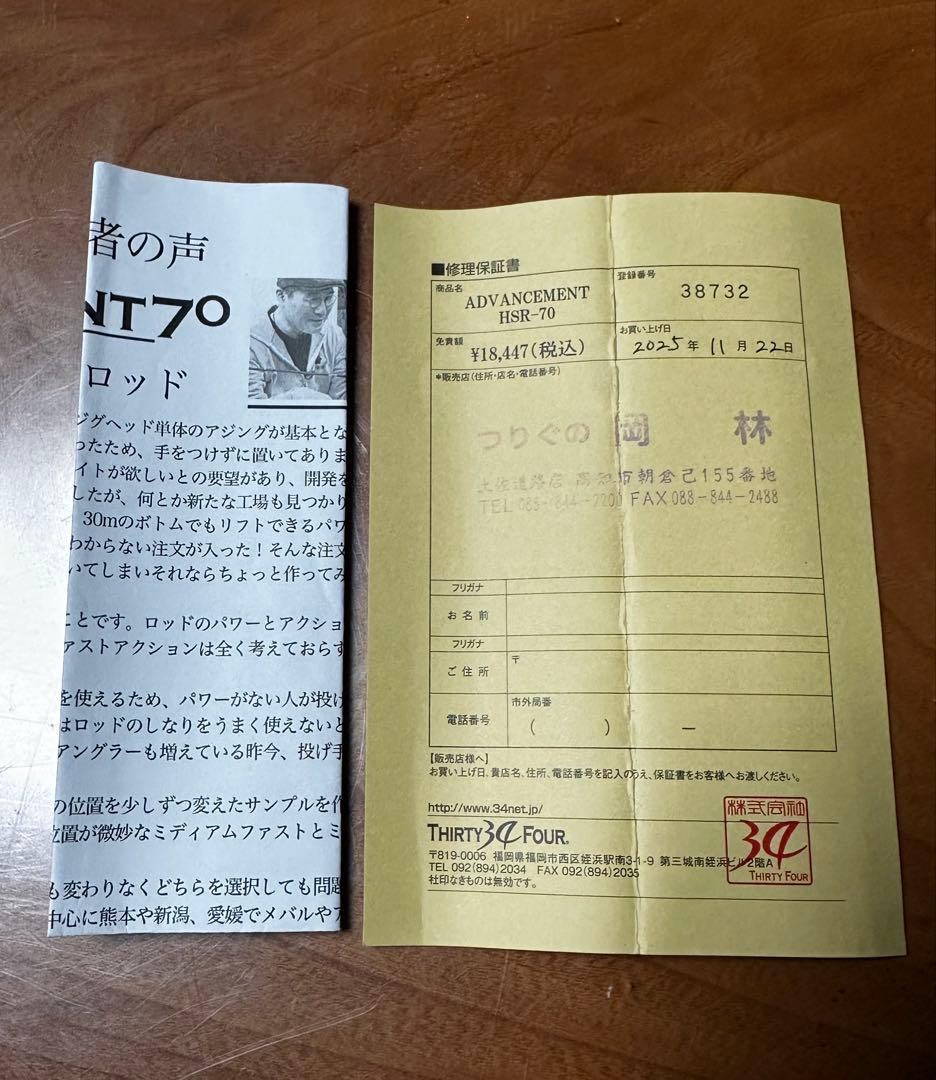 者の声
NT70
ロッド
ジグヘッド単体のアジングが基本とな
ったため、手をつけずに置いてありま
イトが欲しいとの要望があり、開発を
したが、何とか新たな工場も見つかり
30mのボトムでもリフトできるパワ
わからない注文が入った！そんな注文
いてしまいそれならちょっと作ってみ
ことです。ロッドのパワーとアクショ
ァストアクションは全く考えておらず
を使えるため、パワーがない人が投げ
はロッドのしなりをうまく使えないと
アングラーも増えている昨今、投げ手
の位置を少しずつ変えたサンプルを作
位置が微妙なミディアムファストとミ
も変わりなくどちらを選択しても問題
中心に熊本や新潟、愛媛でメバルやア
■修理保証書
商品名
ADVANCEMENT
HSR-70
登録番号
38732
免責額
¥18,447(税込)
お買い上げ日
2025年 11月 22日
*販売店(住所・店名・電話番号)
つりぐの 岡 林
土佐道路店 高知市朝倉己155番地
TEL 088-844-2201 FAX 088-844-2488
フリガナ
お名前
フリガナ
ご住所
〒
電話番号
市外局番
( ) ー
【販売店様へ】
お買い上げ日、貴店名、住所、電話番号を記入のうえ、保証書をお客様へお渡しください。
http://www.34net.jp/
THIRTY 34 FOUR.
〒819-0006 福岡県福岡市西区姪浜駅南3-1-9 第三城南姪浜ビル2階A
TEL 092(894)2034 FAX 092(894)2035
社印なきものは無効です。
株式会社
34
THIRTY FOUR